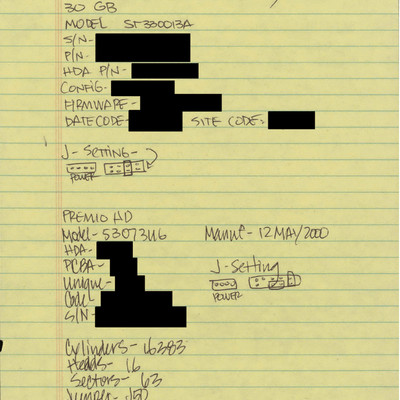 30 GB
MODEL ST330013A
S/N-
P/N-
HDA P/N-
CONFIG-
FIRMWARE-
DATECODE- SITE CODE:
J-SETTING-
POWER
PREMIO HD
Model- 53073U6 Manuf- 12 MAY/2000
HDA-
PCBA-
Unique-
Code
S/N-
J-Setting
POWER
Cylinders- 16383
Heads- 16
Sectors- 63
Jumper- J50